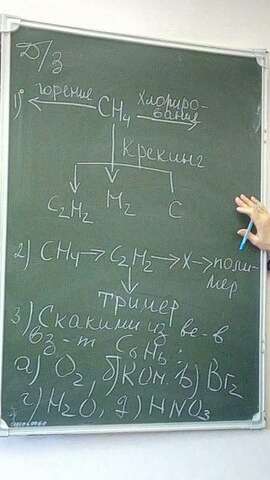 Д/з
1) горение CH₄ Хлориро-
вание
Крекинг
C₂H₂ H₂ C
2) CH₄ → C₂H₂ → X → поли-
мер
Тример
3) С какими из ве-в
вз-т C₆H₆:
а) O₂, б) KOH в) Br₂
г) H₂O, д) HNO₃